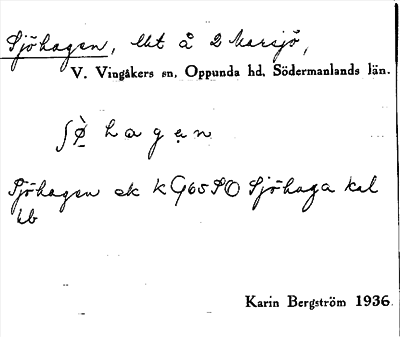 Sjöhagen, lht å 2 Marsjö,
V. Vingåkers sn, Oppunda hd, Södermanlands län.
ʃø̀hagən
Sjöhagen ek K G65SO Sjöhaga kal
hb
Karin Bergström 1936.